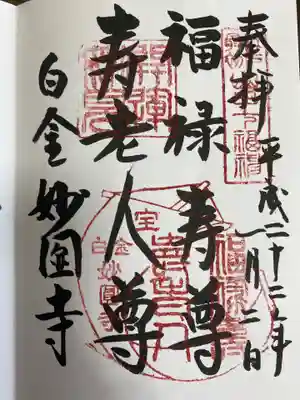 奉拝 平成二十二年一月二日
福禄寿尊
寿老人尊
白金妙圓寺
白金
妙圓寺